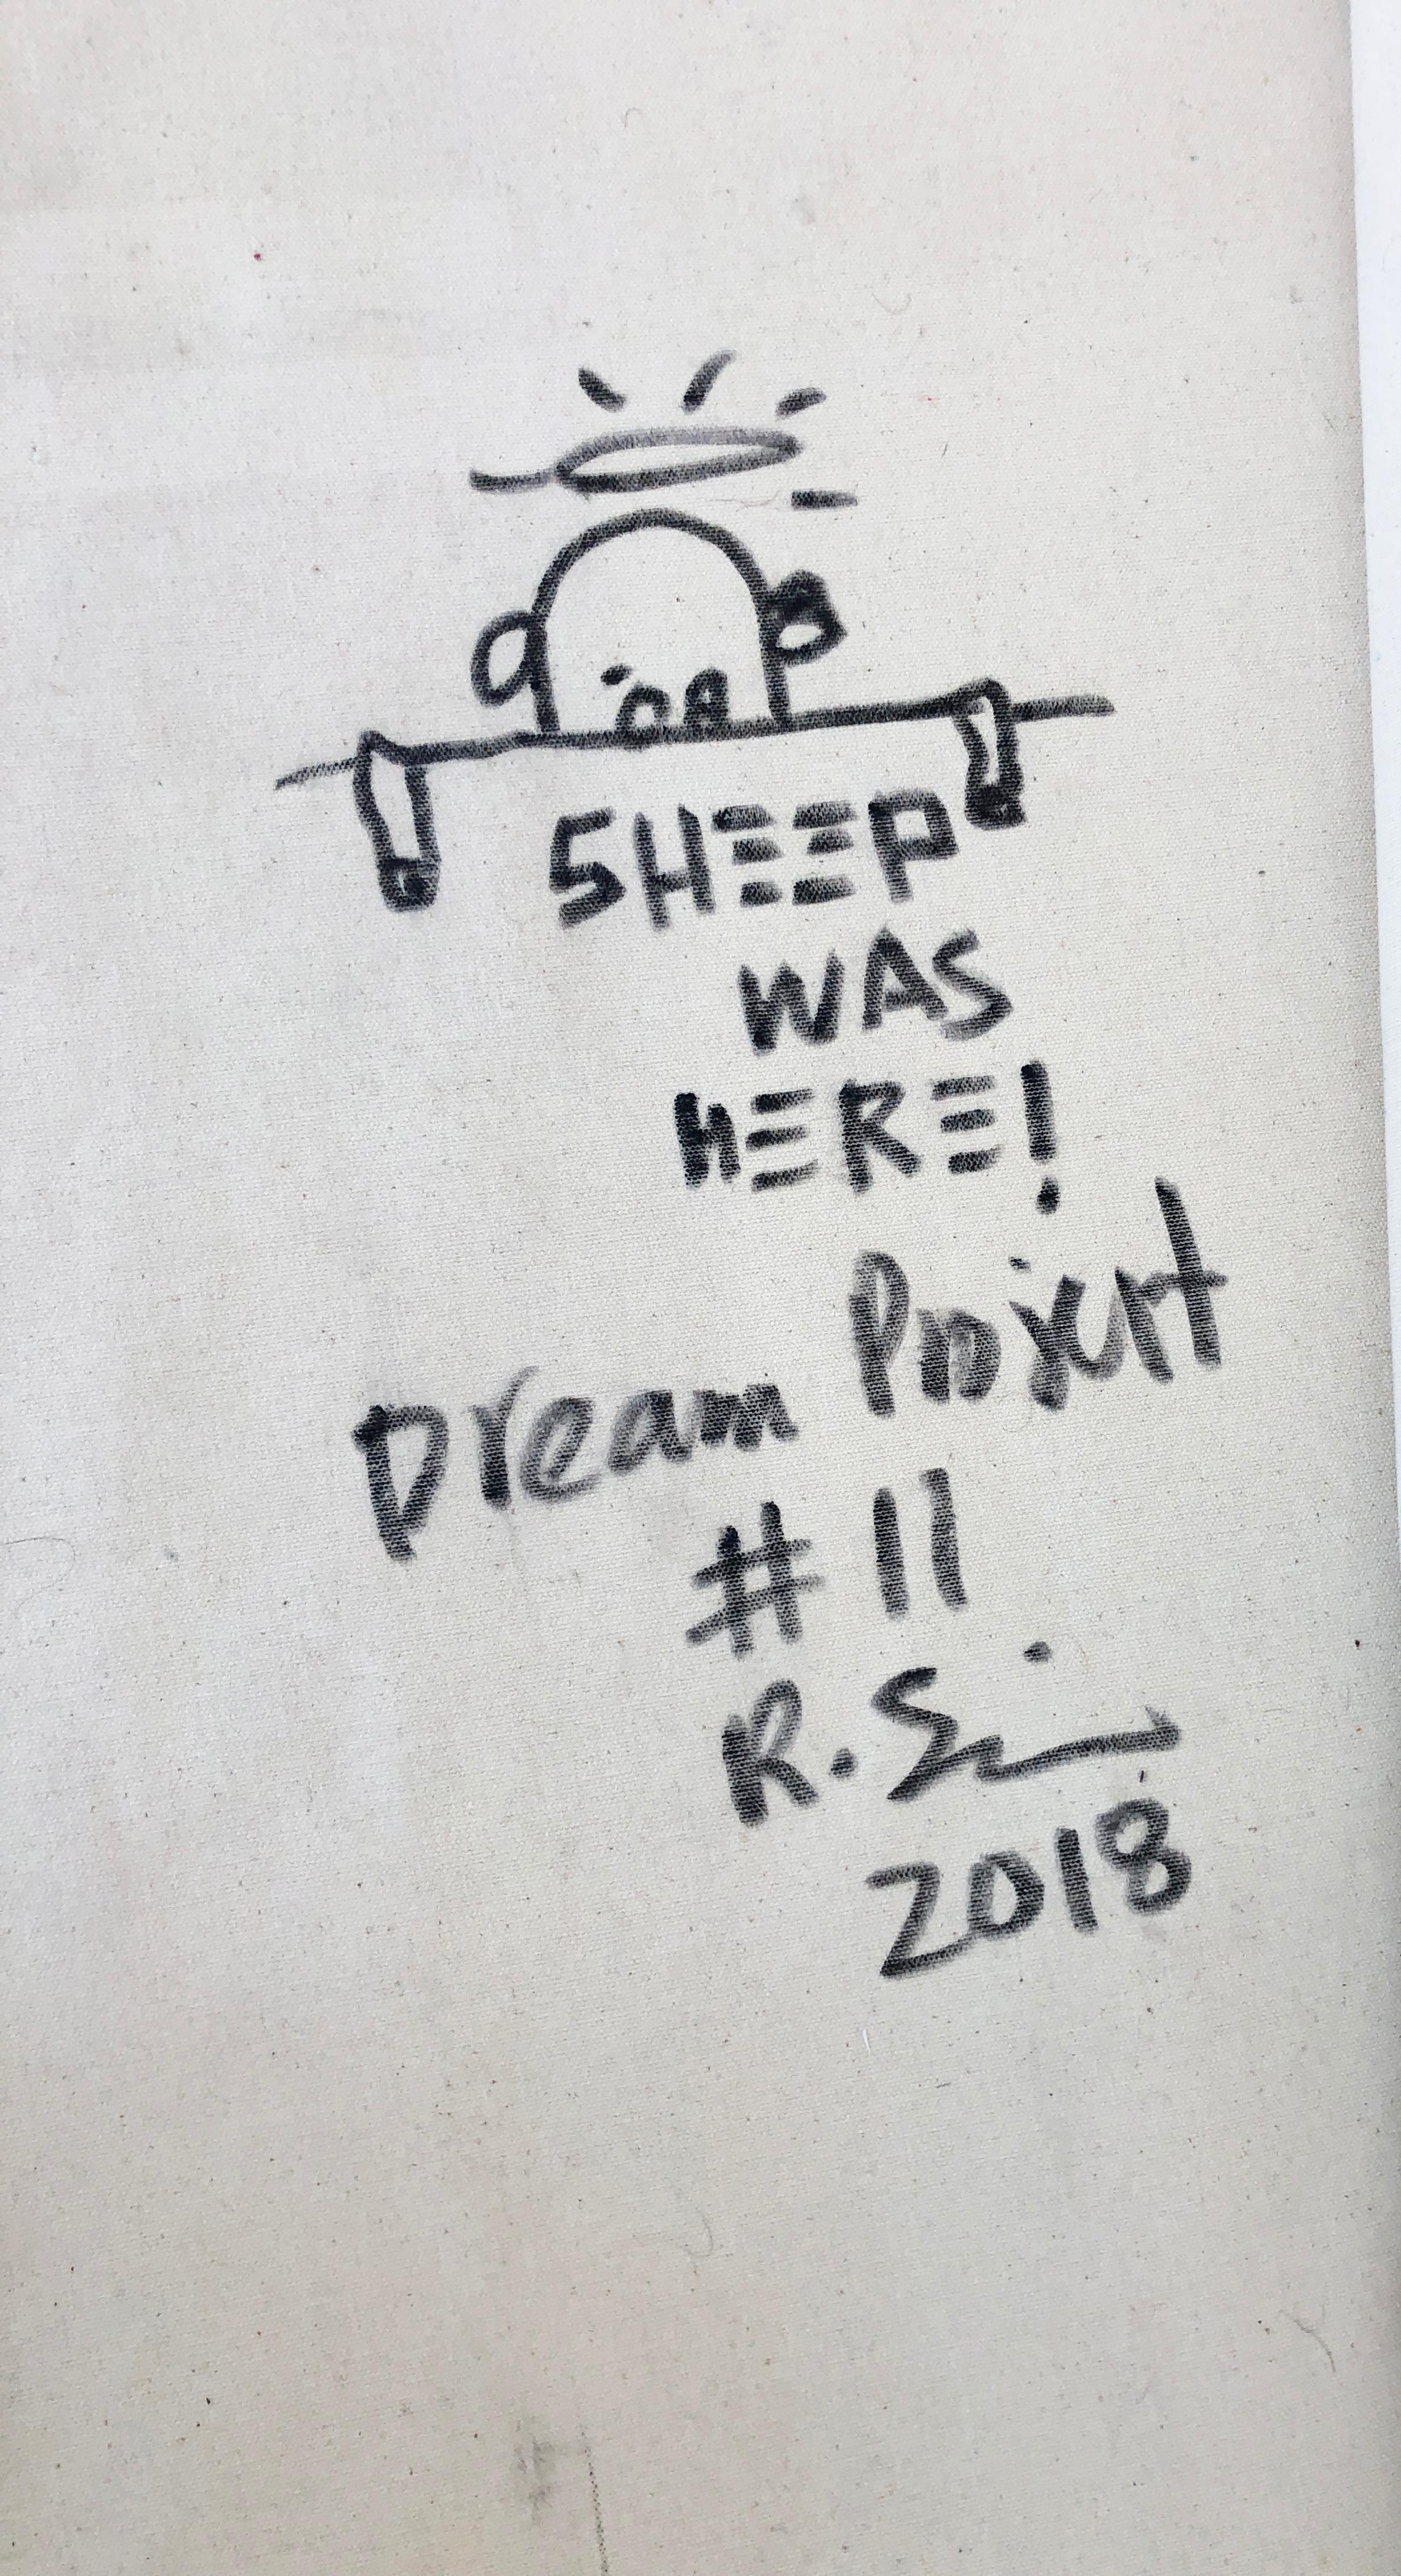 SHEEP
WAS
HERE!
Dream Project
#11
R.
2018